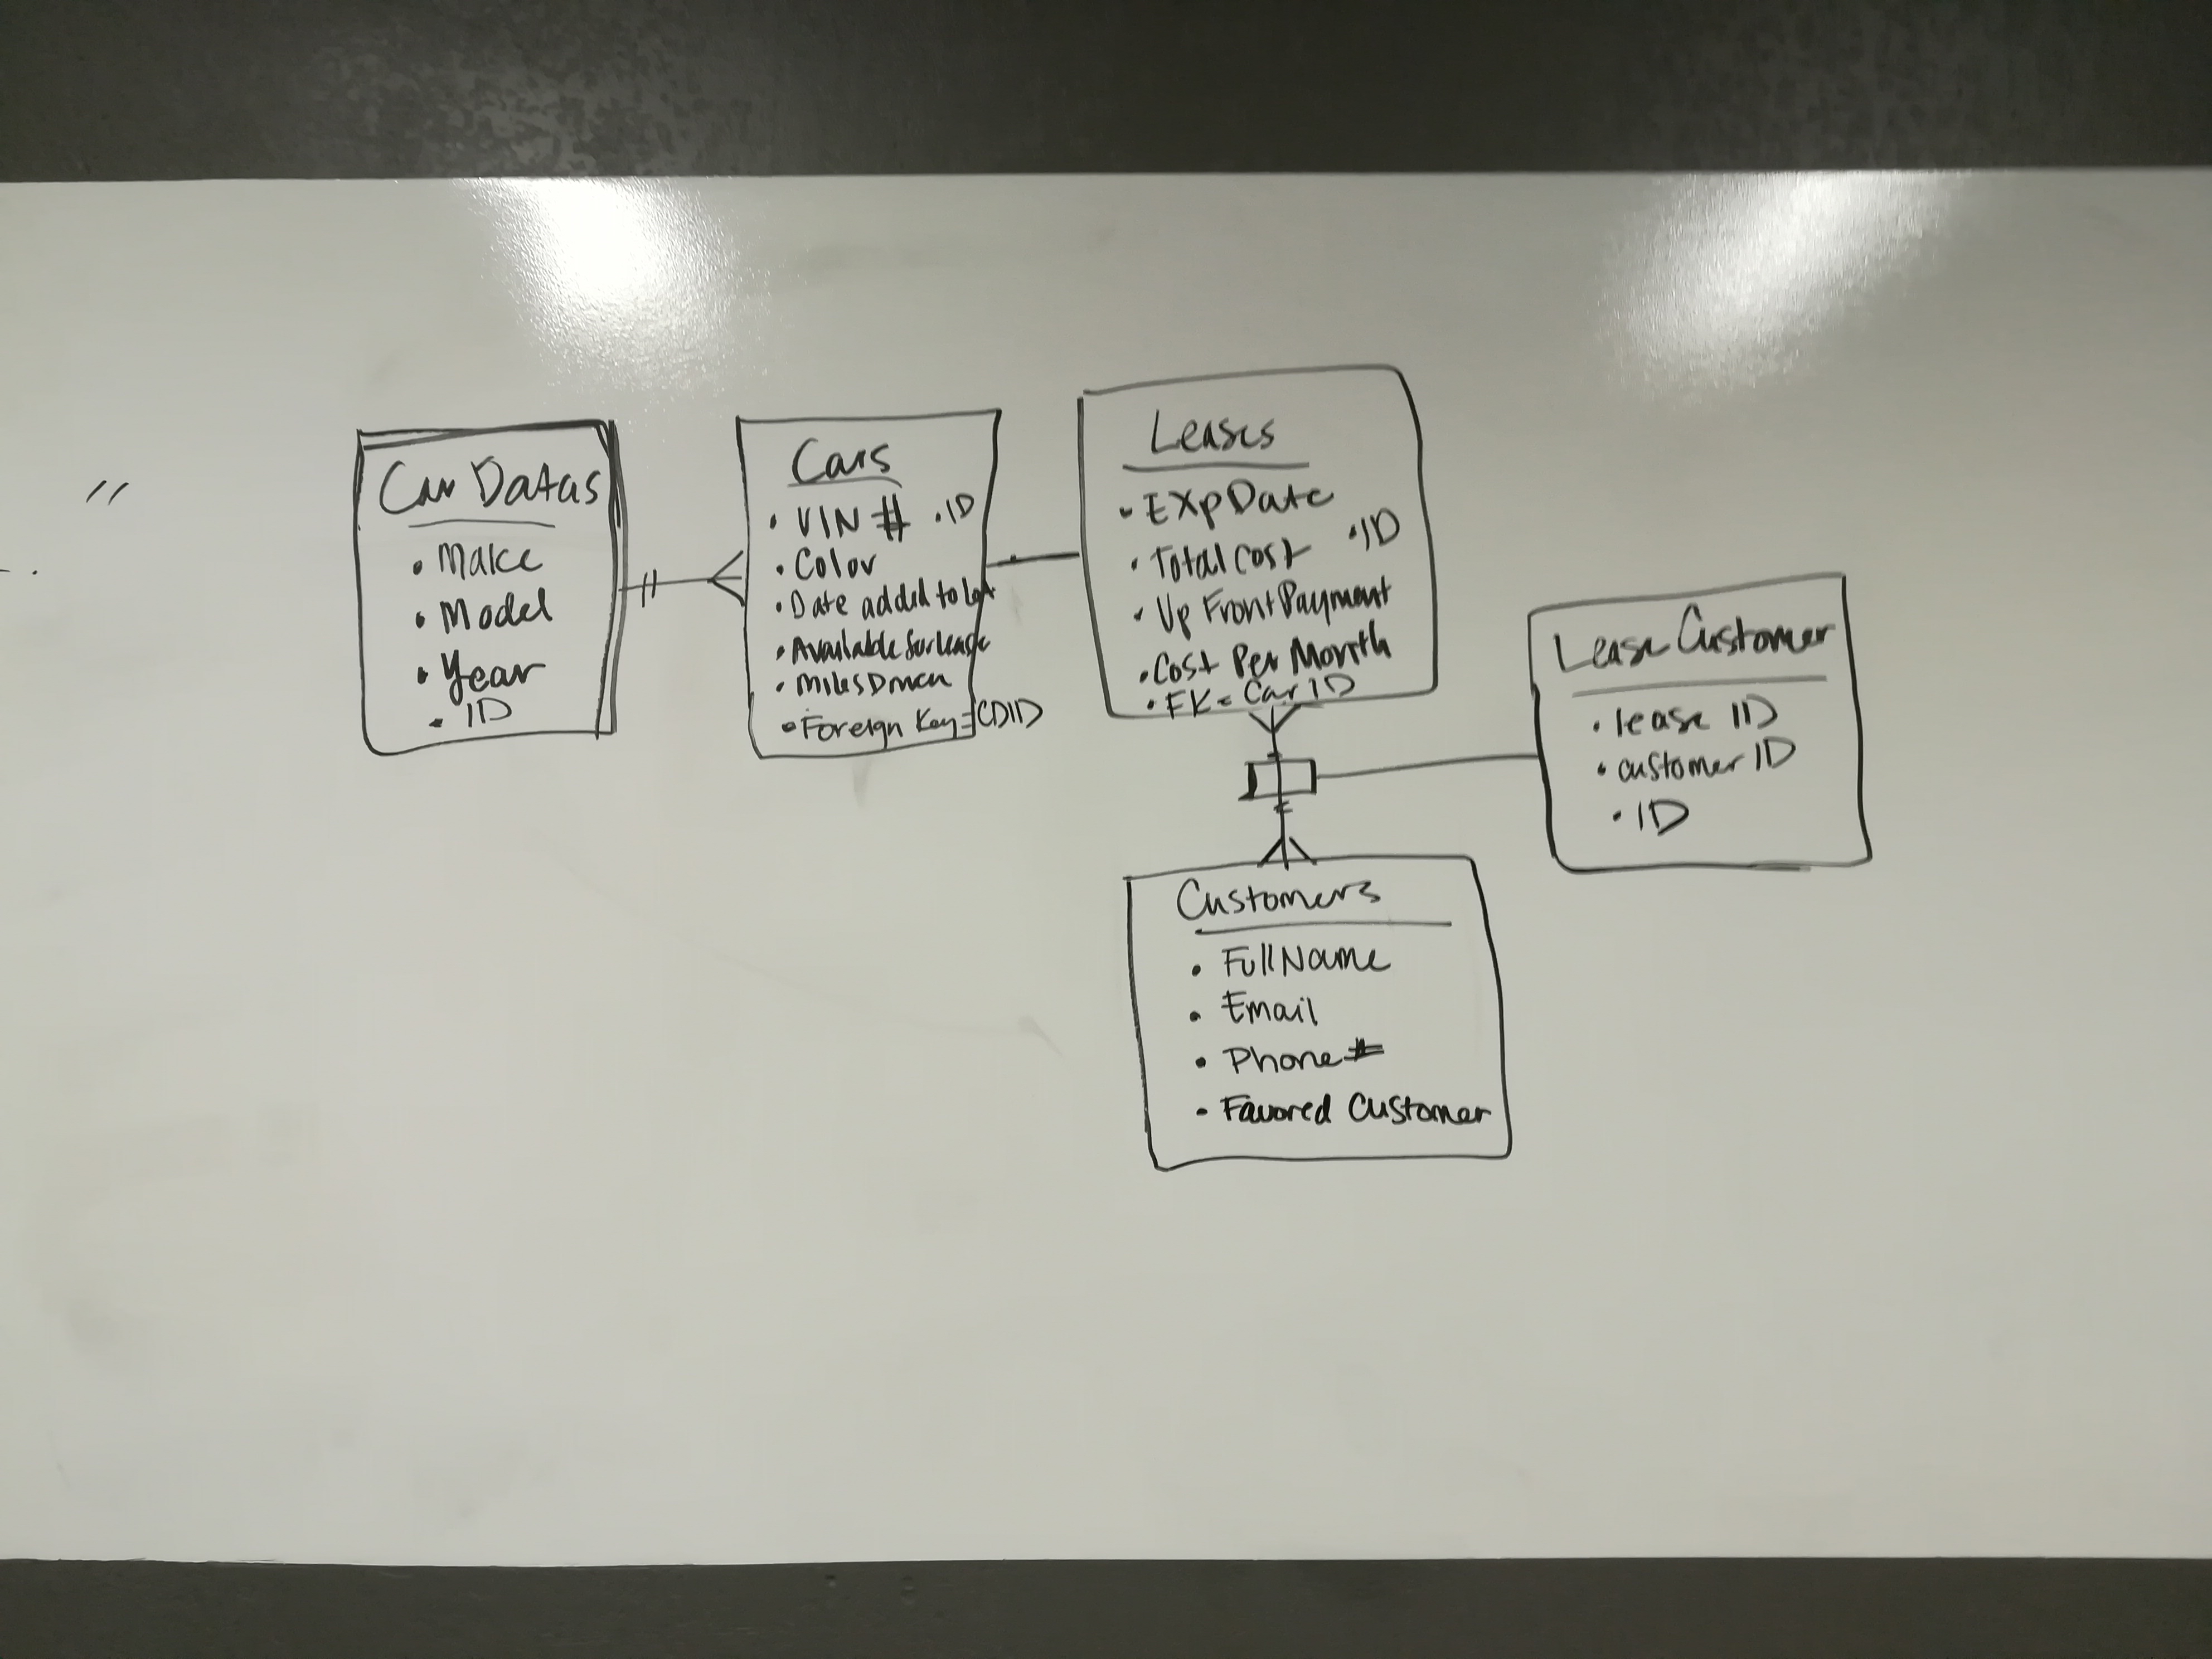 Car Datas
• Make
• Model
• Year
• ID
Cars
• VIN # • ID
• Color
• Date added to Lot
• Available for lease
• Miles Driven
• Foreign Key = CDID
Leases
• EXp Date
• ID
• Total Cost
• Up Front Payment
• Cost Per Month
• FK = Car ID
Lease Customer
• lease ID
• customer ID
• ID
Customers
• Full Name
• Email
• Phone #
• Favored Customer